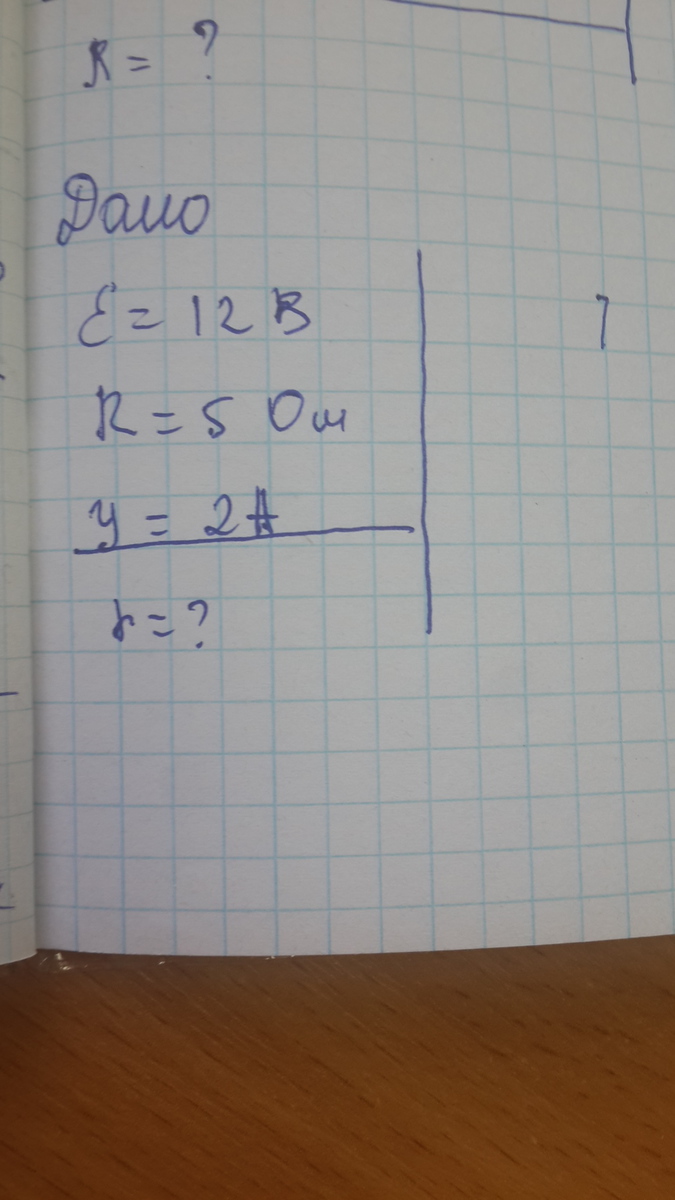 R = ?
Дано
Ɛ = 12 В
R = 5 Ом
У = 2А
r = ?